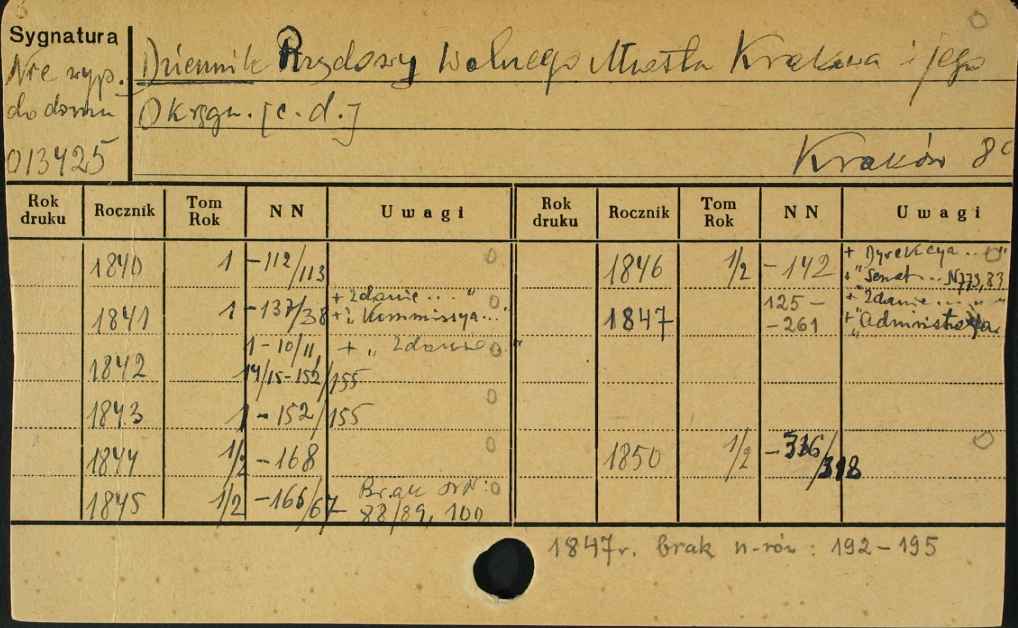 Sygnatura
Nie wyp.
do domu
013425
Dziennik Rządowy Wolnego Miasta Krakowa i jego
Okręgu. [c.d.]
Kraków 8°
Rok druku Rocznik Tom Rok NN Uwagi Rok druku Rocznik Tom Rok NN Uwagi
1840 1 -112/113 0
1841 1 -137/38 + Zdanie .... " 0
+ " Kommissya..."
1842 1-10/11, + " Zdanie 0 "
14/15-152/155
1843 1 -152/155 0
1844 1/2 -168 0
1845 1/2 -166/67 Brak nr: 0
88/89, 100
1846 1/2 -142 + Dyrekcya .. 0 "
+ " Senat ... N 79, 83
1847 125- + Zdanie .... "
-261 + "Administracya
1850 1/2 -336/318 0
1847r. brak n-rów: 192-195